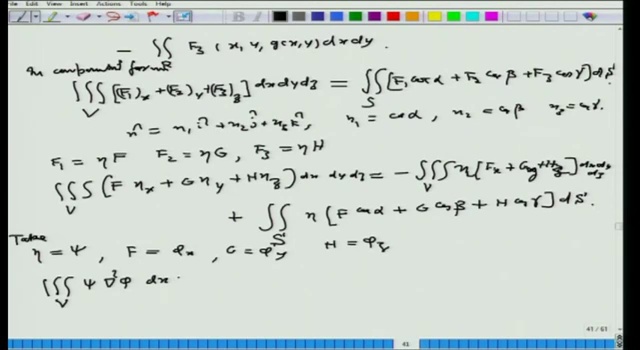 Edit View Insert Actions Tools Help
− ∬_R F₃ (x, y, g(x,y)) dx dy.
In component form
∭_V [(F₁)_x + (F₂)_y + (F₃)_z] dx dy dz = ∬_S [F₁ cos α + F₂ cos β + F₃ cos γ] dS
n̂ = n₁ î + n₂ ĵ + n₃ k̂, n₁ = cos α, n₂ = cos β n₃ = cos γ.
F₁ = ηF F₂ = ηG, F₃ = ηH
∭_V (F η_x + G η_y + H η_z) dx dy dz = − ∭_V η [F_x + G_y + H_z] dx dy dz
+ ∬_S η [F cos α + G cos β + H cos γ] dS.
Take
η = ψ, F = φ_x, G = φ_y H = φ_z
∭_V ψ ∇²φ dx
41 / 61
41